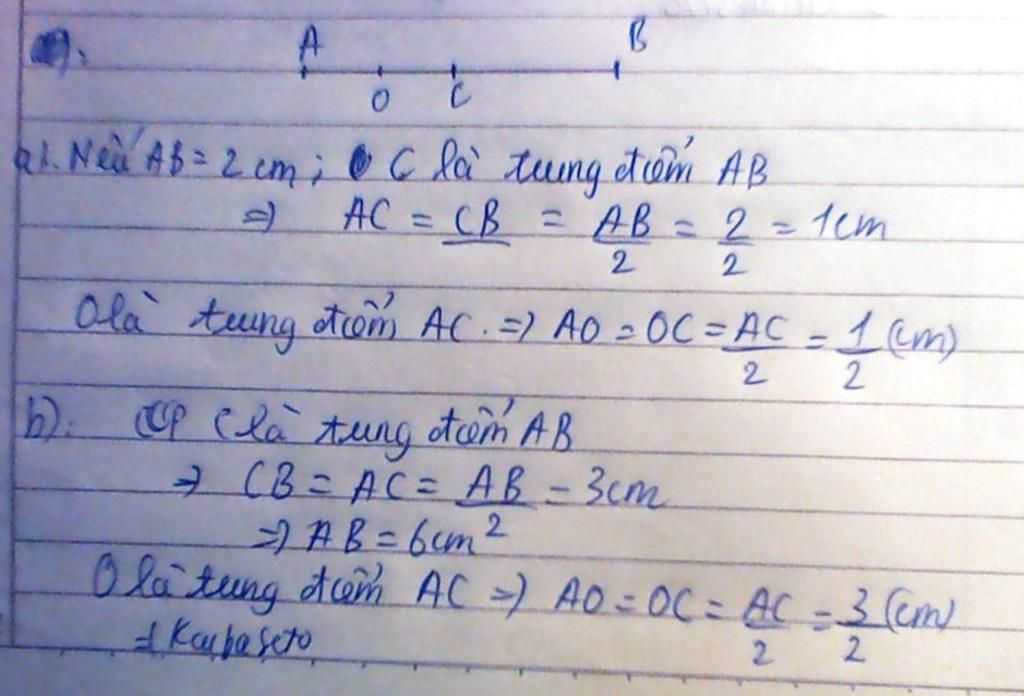 A B
O C
a). Nếu AB = 2 cm; C là trung điểm AB
=> AC = CB = AB/2 = 2/2 = 1cm
O là trung điểm AC. => AO = OC = AC/2 = 1/2 (cm)
b). C là trung điểm AB
=> CB = AC = AB/2 = 3cm
=> AB = 6cm
O là trung điểm AC => AO = OC = AC/2 = 3/2 (cm)